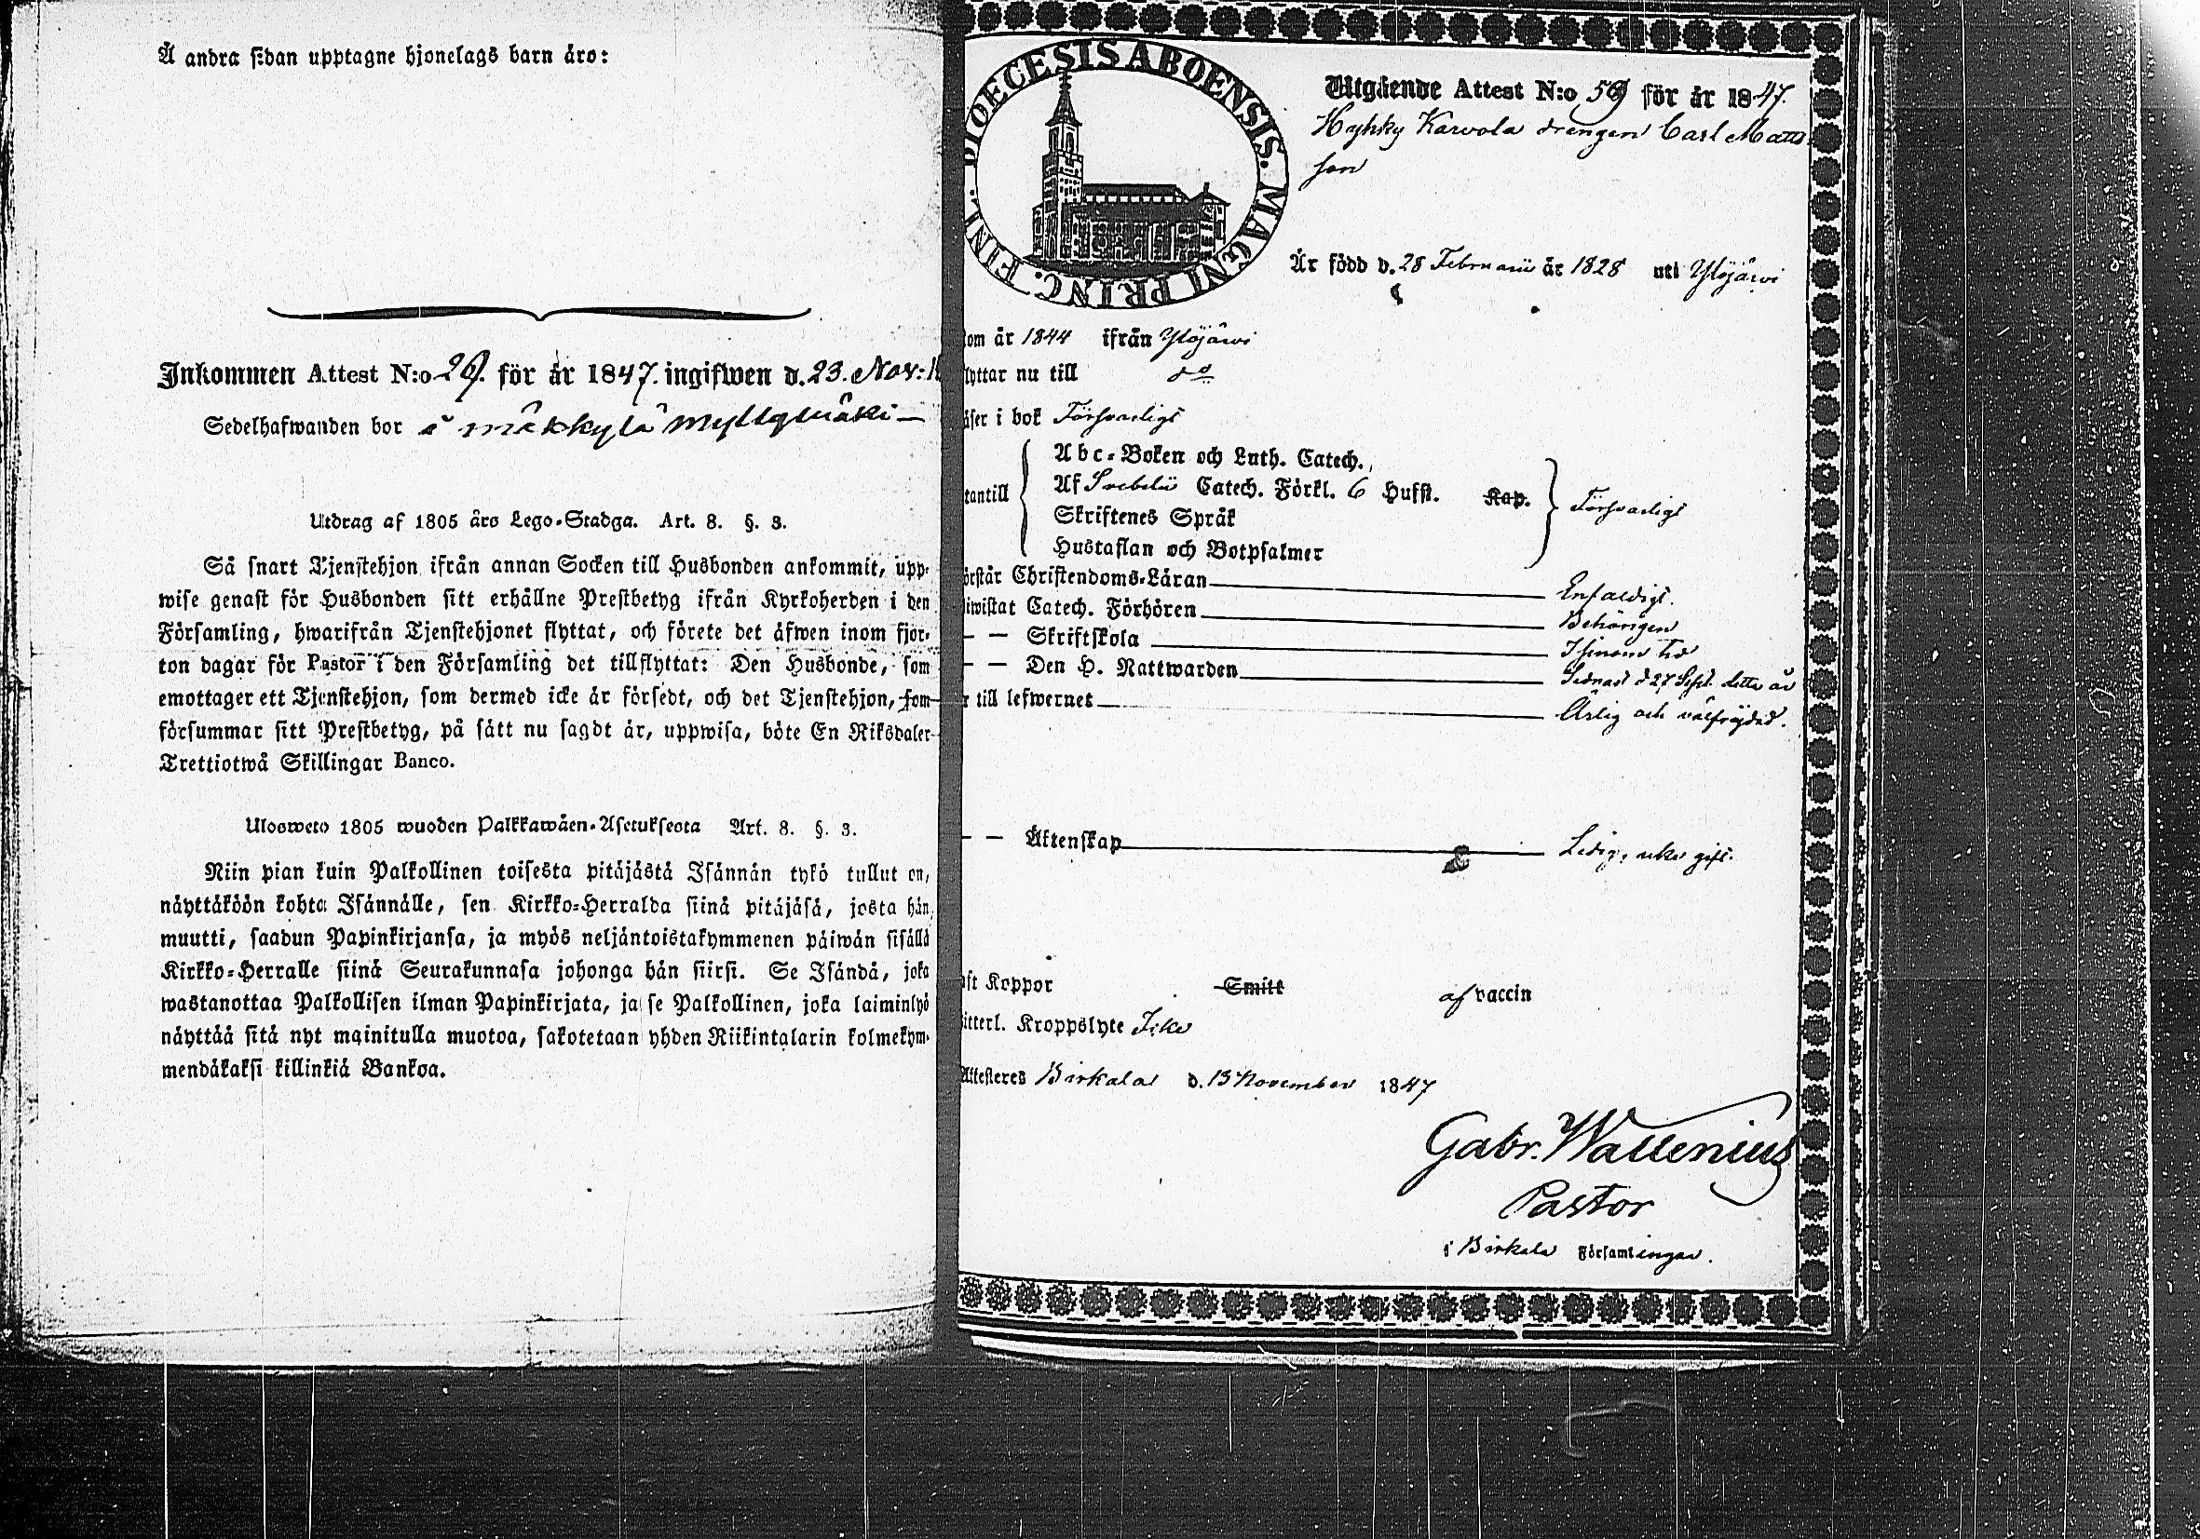 Å andra sidan upptagne hjonelags barn äro:
Inkommen Attest N:o 29. för år 1847. ingifwen d. 23. Nov:
Sedelhafwanden bor i mäkkylä myllymäki —
Utdrag af 1805 års Lego-Stadga. Art. 8. §. 3.
Så snart Tjenstehjon ifrån annan Socken till Husbonden ankommit, upp-
wise genast för Husbonden sitt erhållne Prestbetyg ifrån Kyrkoherden i den
Församling, hwarifrån Tjenstehjonet flyttat, och förete det äfwen inom fjor-
ton dagar för Pastor i den Församling det tillflyttat: Den Husbonde, som
emottager ett Tjenstehjon, som dermed icke är försedt, och det Tjenstehjon, som
försummar sitt Prestbetyg, på sätt nu sagdt är, uppwisa, böte En Riksdaler
Trettiotwå Skillingar Banco.
Ulosweto 1805 wuoden Palkkawäen-Asetuksesta Art. 8. §. 3.
Niin pian kuin Palkollinen toisesta pitäjästä Isännän tykö tullut on,
näyttäköön kohta Isännälle, sen Kirkko-Herralda siinä pitäjäsä, josta hän
muutti, saadun Papinkirjansa, ja myös neljäntoistakymmenen päiwän sisällä
Kirkko-Herralle siinä Seurakunnasa johonga hän siirsi. Se Isändä, joka
wastanottaa Palkollisen ilman Papinkirjata, ja se Palkollinen, joka laiminlyö
näyttää sitä nyt mainitulla muotoa, sakotetaan yhden Riikintalarin kolmekym-
mendäkaksi killinkiä Bankoa.
DIOECESIS ABOENSIS. MAGNI PRINC. FINL.
Utgående Attest N:o 59 för år 1847.
Hyhky Karvola drengen Carl Matts
son
Är född d. 28 Februarii år 1828 uti Ylöjärvi
kom år 1844 ifrån Ylöjärvi
flyttar nu till do
läser i bok Försvarligt
utantill
Abc-Boken och Luth. Catech.
Af Svebelii Catech. Förkl. 6 Hufst. Kap. Försvarligt
Skriftenes Språk
Hustaflan och Botpsalmer
förstår Christendoms-Läran Enfaldigt.
biwistat Catech. Förhören Behörigen
— — Skriftskola I sinom tid
— — Den H. Nattwarden Sednast d 27 Sept. detta år
är till lefwernet Ärlig och välfrejdad.
— — Äktenskap Ledig, icke gift.
haft Koppor Smitt af vaccin
Witterl. Kroppslyte Icke
Attesteres Birkala d. 13 November 1847
Gabr. Wallenius
Pastor
i Birkala Församlingar.